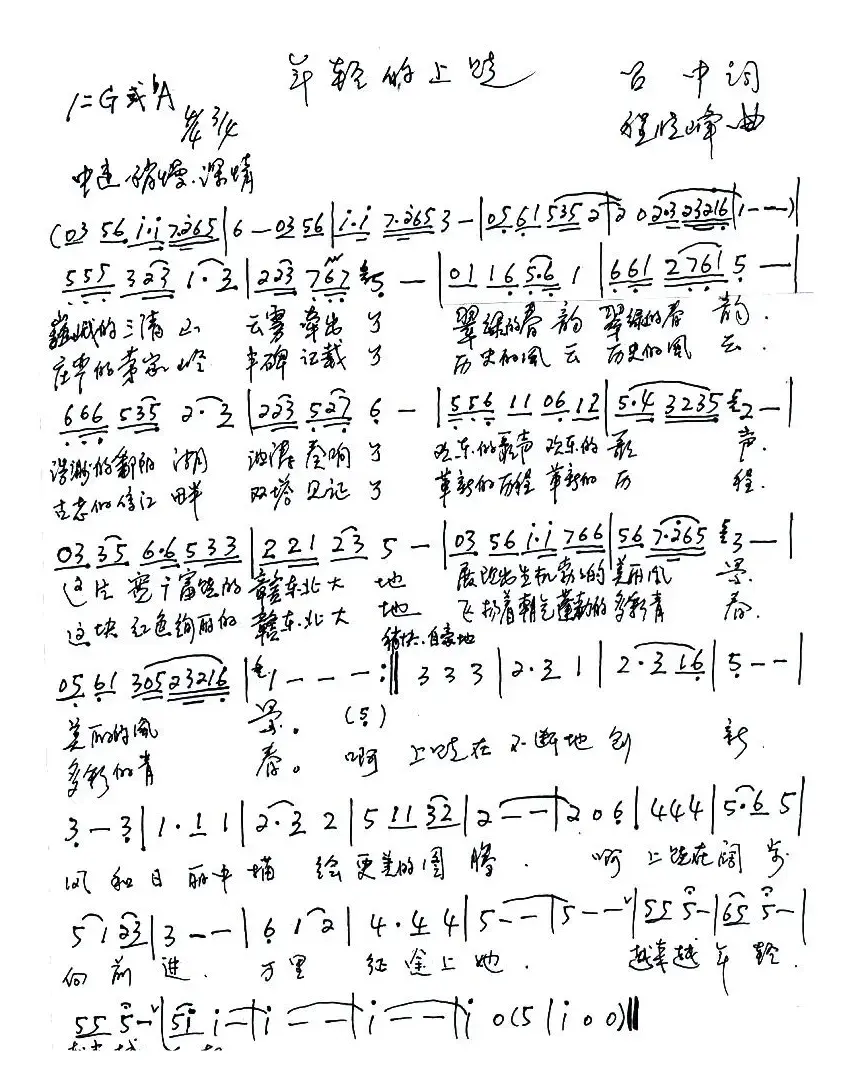 年轻的上饶
吕中词
1=G或♭A 4/4 3/4
程晓峰曲
中速 稍慢.深情
(03 56 i·i 7·265 | 6 - 03 56 | i·i 7·265 3 - | 0561 535 2 | 2 0 2·3 23216 | 1 - - )
555 323 1·3 | 223 767 5 - | 01 16 5·6 1 | 661 2761 5 - |
巍峨的三清山 云雾牵出了 翠绿的春韵 翠绿的春韵.
庄严的茅家岭 丰碑记载了 历史的风云 历史的风云.
666 535 2·3 | 223 527 6 - | 556 11 06 12 | 5·4 3235 2 - |
浩渺的鄱阳湖 波涛奏响了 欢乐的歌声 欢乐的歌声.
古老的信江畔 双塔见证了 革新的历程 革新的历程.
03 35 6·6 533 | 221 23 5 - | 03 56 i·i 766 | 56 7·265 3 - |
这片 富饶的赣东北大地 展现出生机勃勃的美丽风景.
这块红色绚丽的赣东北大地 飞扬着朝气蓬勃的多彩青春.
稍快.自豪地
05 61 305 23216 | 1 - - - :‖ 3 3 3 | 2·3 1 | 2·3 16 | 5 - - |
美丽的风景。 (5)
多彩的青春。 啊 上饶在不断地创新.
3 - 3 | 1·1 1 | 2·3 2 | 5 11 32 | 2 - - | 2 0 6 | 4 4 4 | 5·6 5 |
风和日丽中描绘更美的图腾. 啊 上饶在阔步
5 1 23 | 3 - - | 6 1 2 | 4·4 4 | 5 - - | 5 - - | 55 5 - | 65 5 - |
向前进. 万里征途上她. 越来越年轻.
55 5 - | 5i i - | i - - | i - - | i 0 (5 | i 0 0) ‖